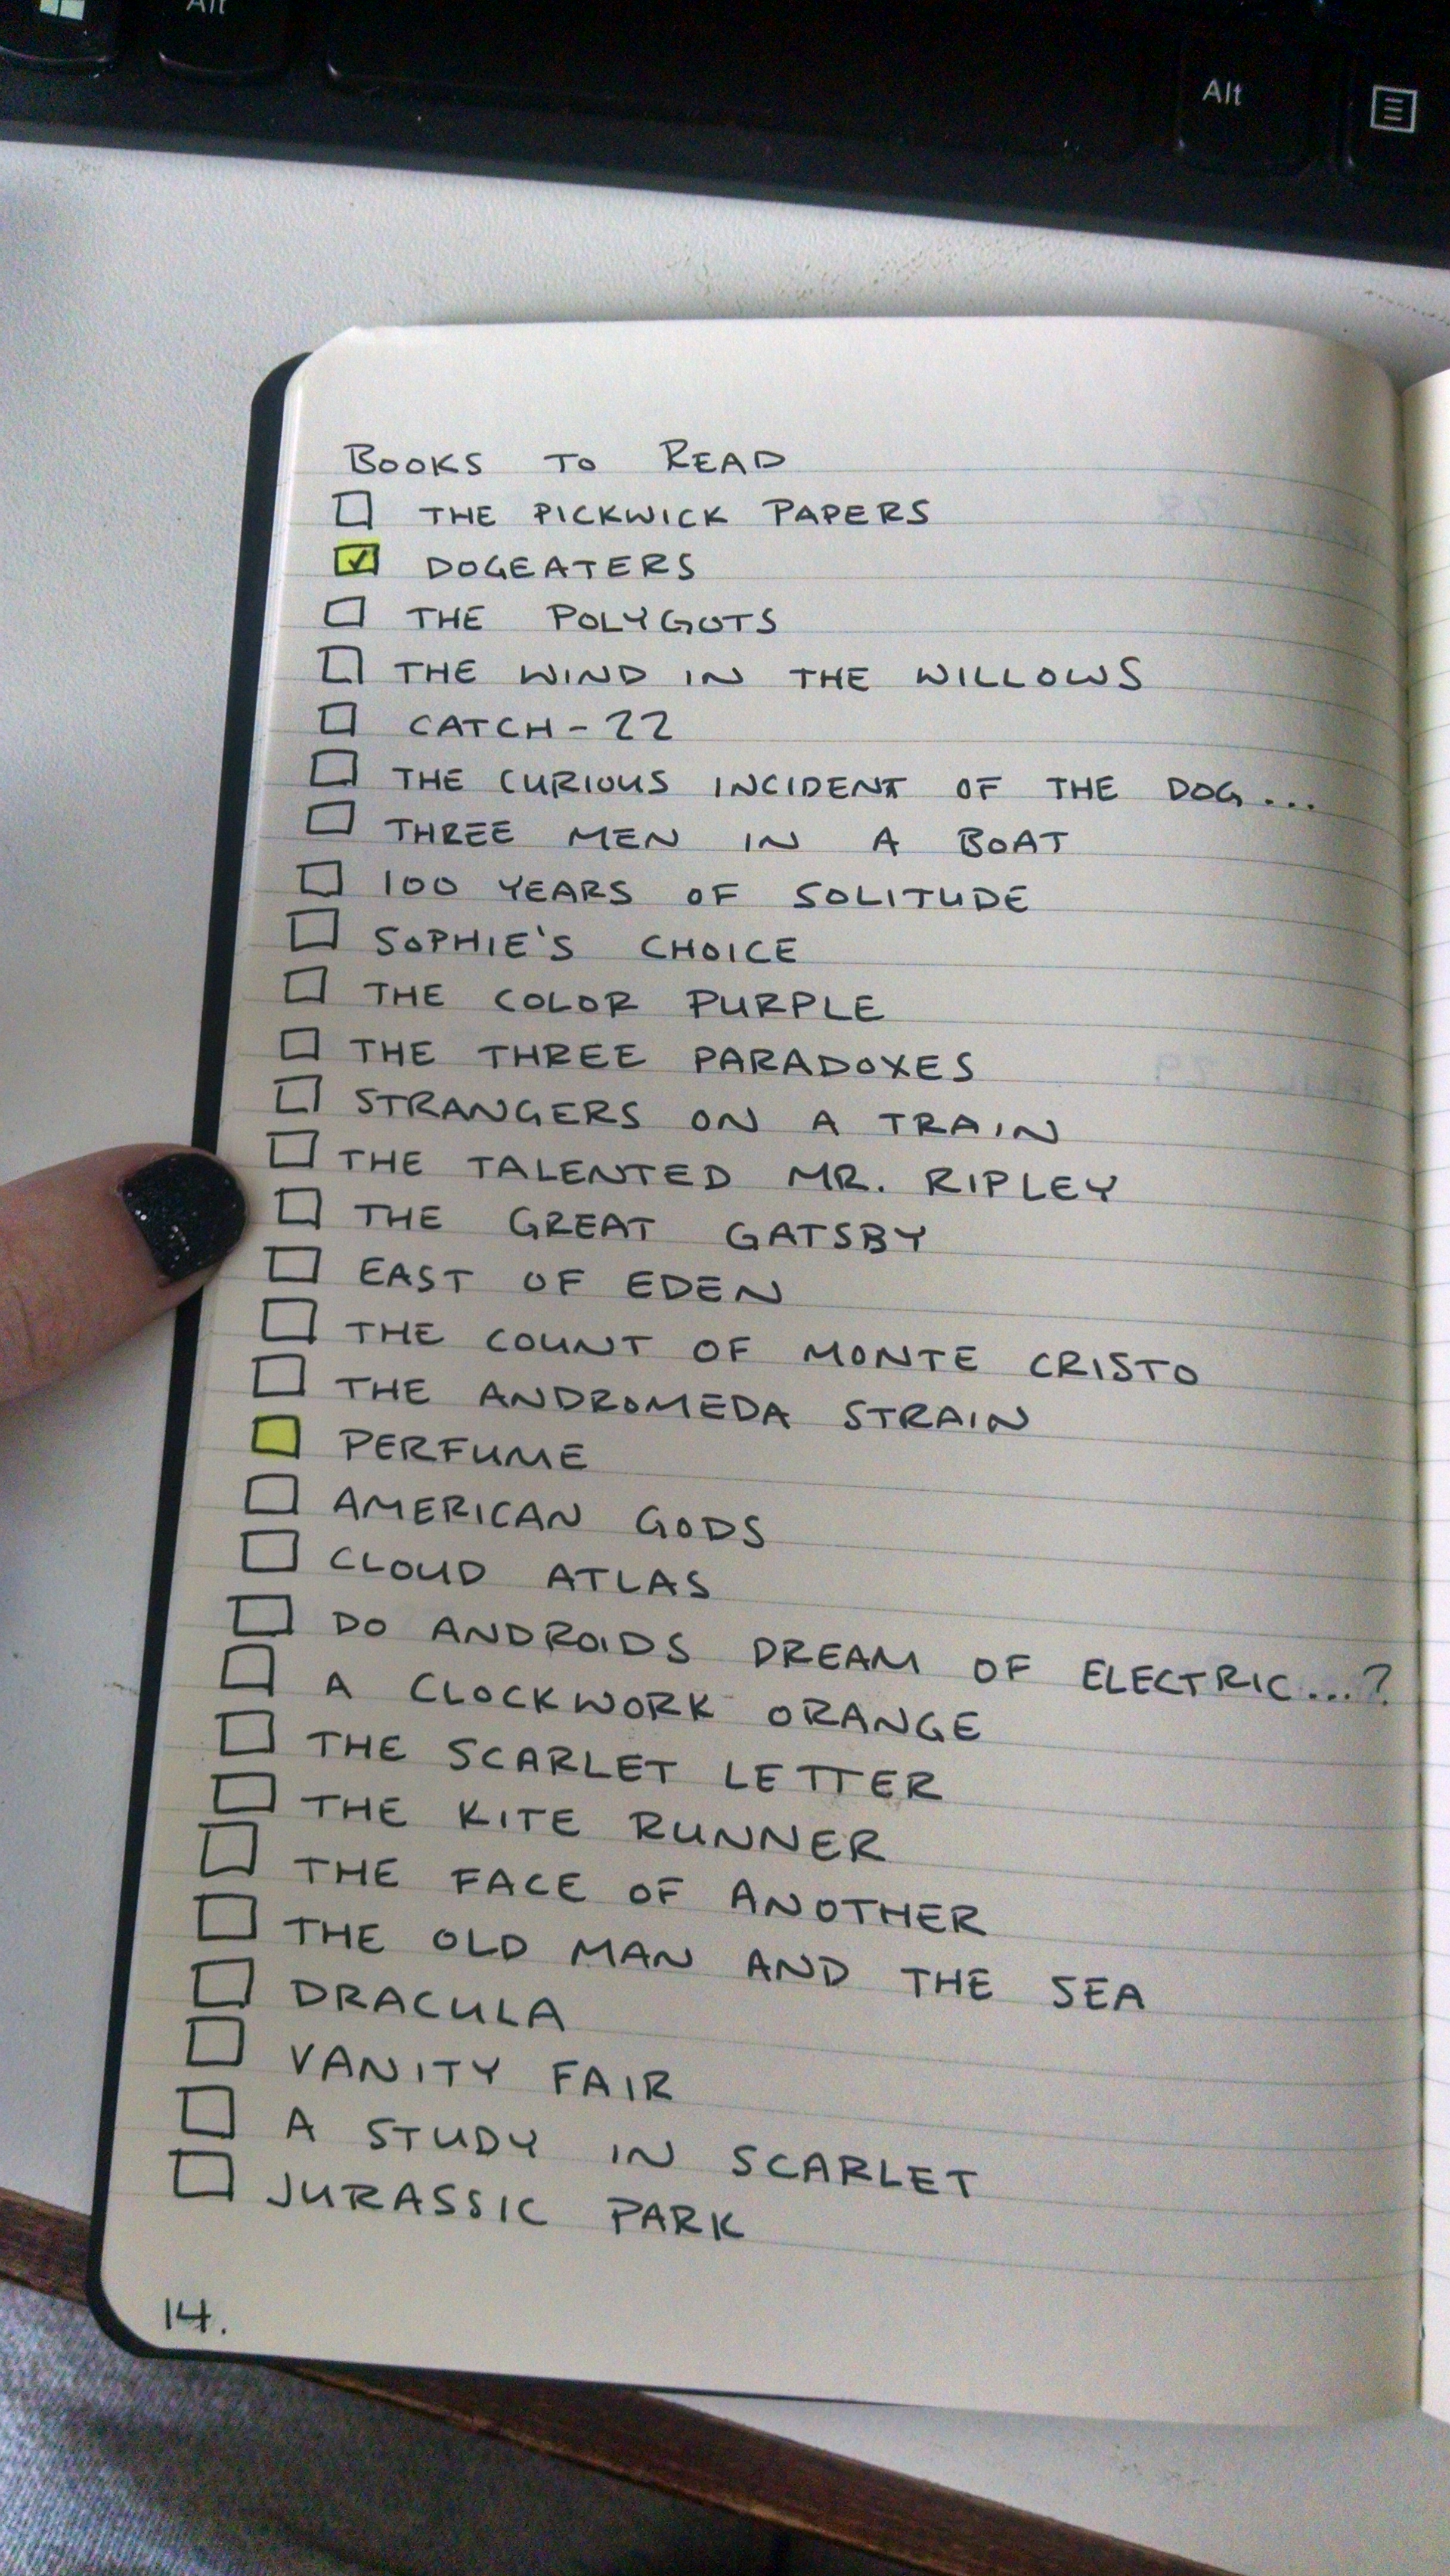 Alt
Alt
BOOKS TO READ
THE PICKWICK PAPERS
DOGEATERS
THE POLYGOTS
THE WIND IN THE WILLOWS
CATCH-22
THE CURIOUS INCIDENT OF THE DOG...
THREE MEN IN A BOAT
100 YEARS OF SOLITUDE
SOPHIE'S CHOICE
THE COLOR PURPLE
THE THREE PARADOXES
STRANGERS ON A TRAIN
THE TALENTED MR. RIPLEY
THE GREAT GATSBY
EAST OF EDEN
THE COUNT OF MONTE CRISTO
THE ANDROMEDA STRAIN
PERFUME
AMERICAN GODS
CLOUD ATLAS
DO ANDROIDS DREAM OF ELECTRIC...?
A CLOCKWORK ORANGE
THE SCARLET LETTER
THE KITE RUNNER
THE FACE OF ANOTHER
THE OLD MAN AND THE SEA
DRACULA
VANITY FAIR
A STUDY IN SCARLET
JURASSIC PARK
14.